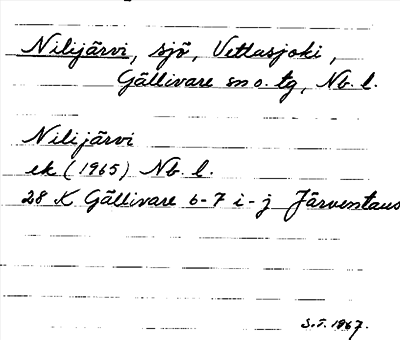 Nilijärvi, sjö, Vettasjoki,
Gällivare sn o. tg, Nb. l.
Nilijärvi
ek (1965) Nb. l.
28 K Gällivare 6-7 i-j Järventaus
S.T. 1967.